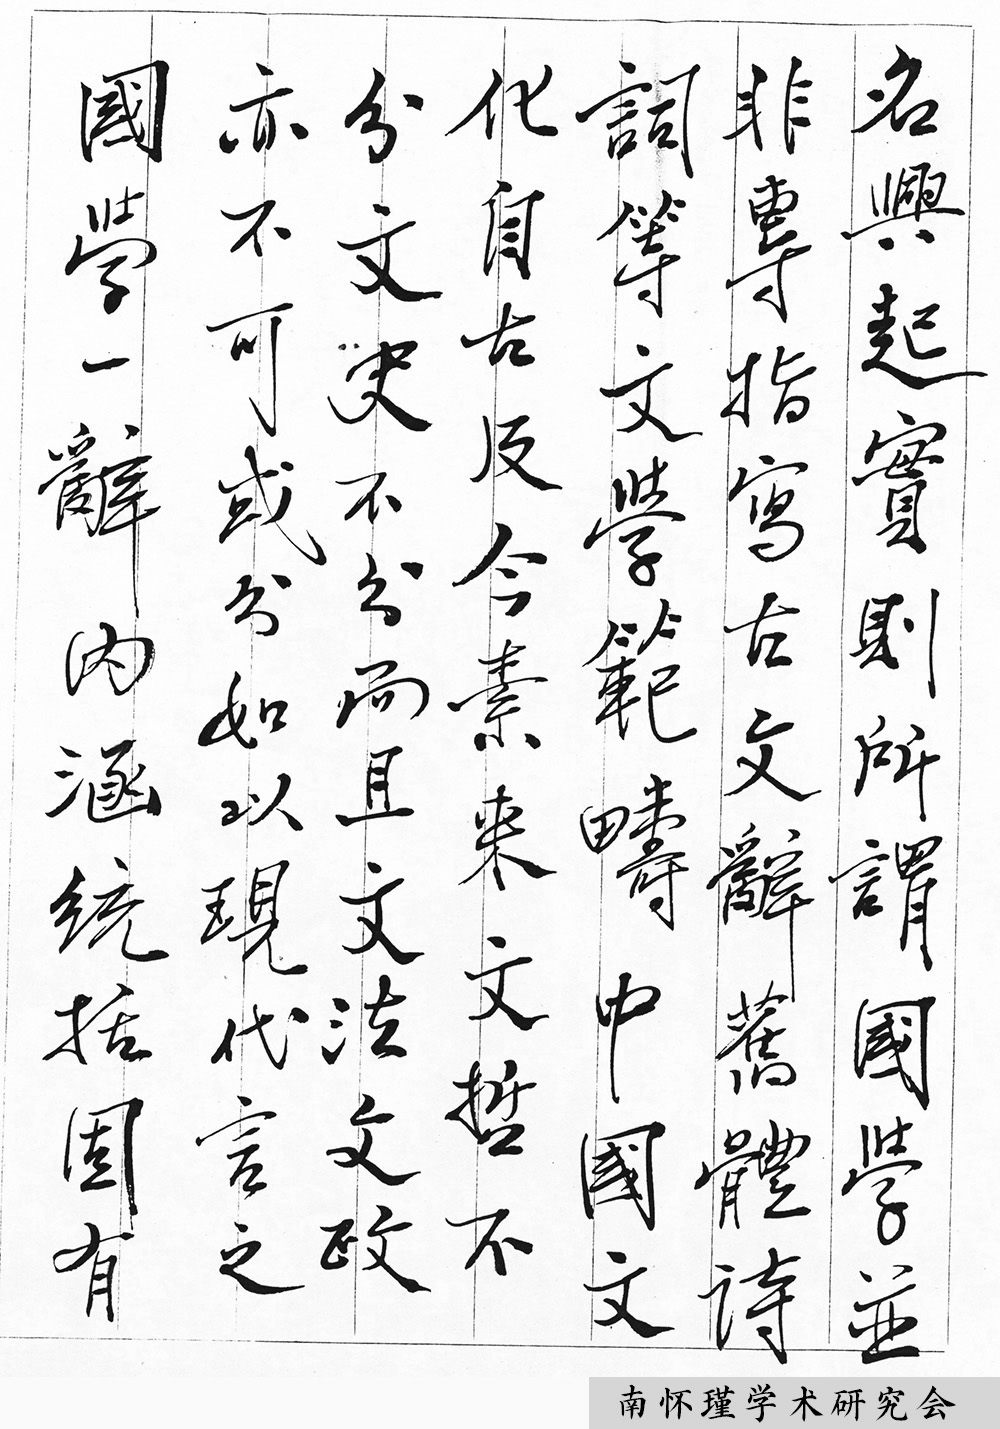 名興起實則所謂國學並
非專指寫古文辭舊體詩
詞等文學範疇中國文
化自古及今素來文哲不
分文史不分而且文法文政
亦不可或分如以現代言之
國學一辭内涵統括固有
南怀瑾学术研究会